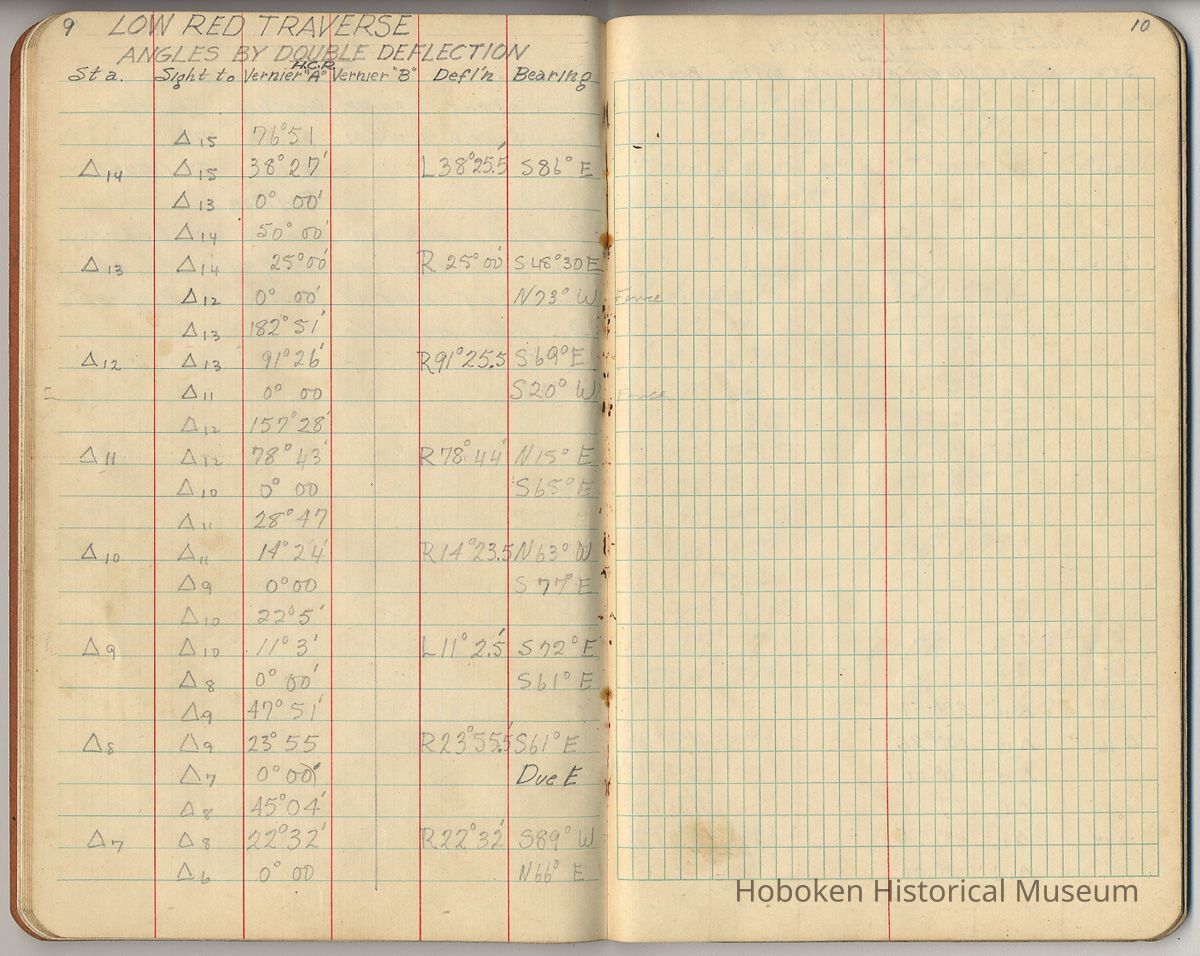 9 LOW RED TRAVERSE
ANGLES BY DOUBLE DEFLECTION
H.C.R.
Sta. Sight to Vernier "A" Vernier "B" Defl'n Bearing
△15 76°51
△14 △15 38°27' L38°25.5' S86° E
△13 0° 00'
△14 50° 00'
△13 △14 25°00' R 25°00' S48°30E
△12 0° 00' N73° W Fence
△13 182°51'
△12 △13 91°26' R91°25.5 S69°E
△11 0° 00 S20° W Fence
△12 157°28'
△11 △12 78°43' R78°44' N15° E
△10 0° 00 S65° E
△11 28°47
△10 △11 14°24' R14°23.5 N63° W
△9 0°00 S77° E
△10 22°5'
△9 △10 11°3' L11°2.5' S72° E
△8 0°00' S61° E
△9 47°51'
△8 △9 23°55 R23°55.5' S61° E
△7 0°00' Due E
△8 45°04'
△7 △8 22°32' R22°32' S89° W
△6 0° 00 N66° E
10
Hoboken Historical Museum